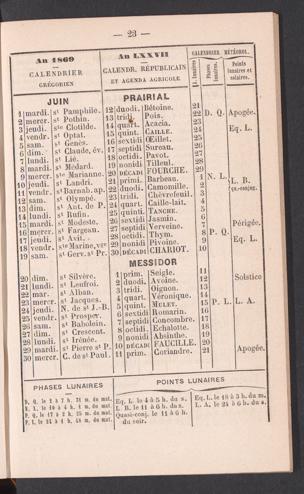 — 23 —
An 1869
CALENDRIER
GRÉGORIEN
An LXXVII
CALENDR. RÉPUBLICAIN
ET AGENDA AGRICOLE
CALENDRIER MÉTÉOROL.
Phases lunaires
Points lunaires et solaires.
JUIN
PRAIRIAL
1 mardi. st Pamphile. 12 duodi. Bétoine. 21
2 mercr. st Pothin. 13 tridi. Pois. 22 D. Q. Apogée.
3 jeudi. ste Clotilde. 14 quart. Acacia. 23
4 vendr. st Optat. 15 quint. CAILLE. 24 Eq. L.
5 sam. st Genès. 16 sextidi Œillet. 25
6 dim. st Claude, év. 17 septidi Sureau. 26
7 lundi. st Lié. 18 octidi. Pavot. 27
8 mardi. st Médard. 19 nonidi Tilleul. 28
9 mercr. ste Marianne. 20 DÉCADI FOURCHE. 29
10 jeudi. st Landri. 21 prim. Barbeau. 1 N. L.
11 vendr. st Barnab. ap. 22 duodi. Camomille. 2 L. B.
12 sam. st Olympe. 23 tridi. Chèvrefeuil. 3
13 dim. st Ant. de P. 24 quart. Caille-lait. 4
14 lundi. st Rufin. 25 quinti. TANCHE. 5
15 mardi. st Modeste. 26 sextidi Jasmin. 6
16 mercr. st Fargeau. 27 septidi Verveine. 7 Périgée.
17 jeudi. st Avit. 28 octidi. Thym. 8 P. Q.
18 vendr. ste Marine, vie 29 nonidi Pivoine. 9 Eq. L.
19 sam. st Gerv. st Pr. 30 DÉCADI CHARIOT. 10
MESSIDOR
20 dim. st Silvère. 1 prim. Seigle. 11
21 lundi. st Leufroi. 2 duodi. Avoine. 12 Solstice
22 mar. st Alban. 3 tridi. Oignon. 13
23 mercr. st Jacques. 4 quart. Véronique. 14
24 jeudi. N. de st J.-B. 5 quinti. MULET. 15 P. L. L. A.
25 vendr. st Prosper. 6 sextidi Romarin. 16
26 sam. st Babolein. 7 septidi Concombre. 17
27 dim. st Crescent. 8 octidi Echalotte. 18
28 lundi. st Irénée. 9 nonidi Absinthe. 19
29 mardi. st Pierre st P. 10 DÉCADI FAUCILLE. 20
30 mercr. C. de st Paul. 11 prim. Coriandre. 21 Apogée.
PHASES LUNAIRES
POINTS LUNAIRES
D. Q. le 2 à 7 h. 31 m. du mat.
N. L. le 10 à 4 h. 1 m. du mat.
P. Q. le 17 à 2 h. 25 m. du mat.
P. L. le 24 à 1 h. 48 m. du mat.
Eq. L. le 4 à 5 h. du s.
L. B. le 11 à 6 h. du s.
Quasi-conj. le 11 à 6 h.
du soir.
Eq. L. le 18 à 3 h. du m.
L. A. le 24 à 6 h. du s.